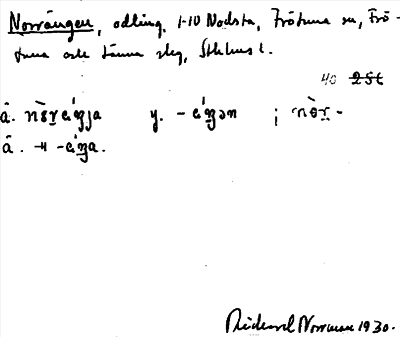 Norrängen, odling, 1-10 Nodsta, Frötuna sn, Frö-
tuna och Länna skg, Sthlms l.
40 25t
å. nòr̲e´ŋja y. - e´ŋən ; nòr̲-
å. -"- -e´ŋa.
Rickard Norrman 1930.